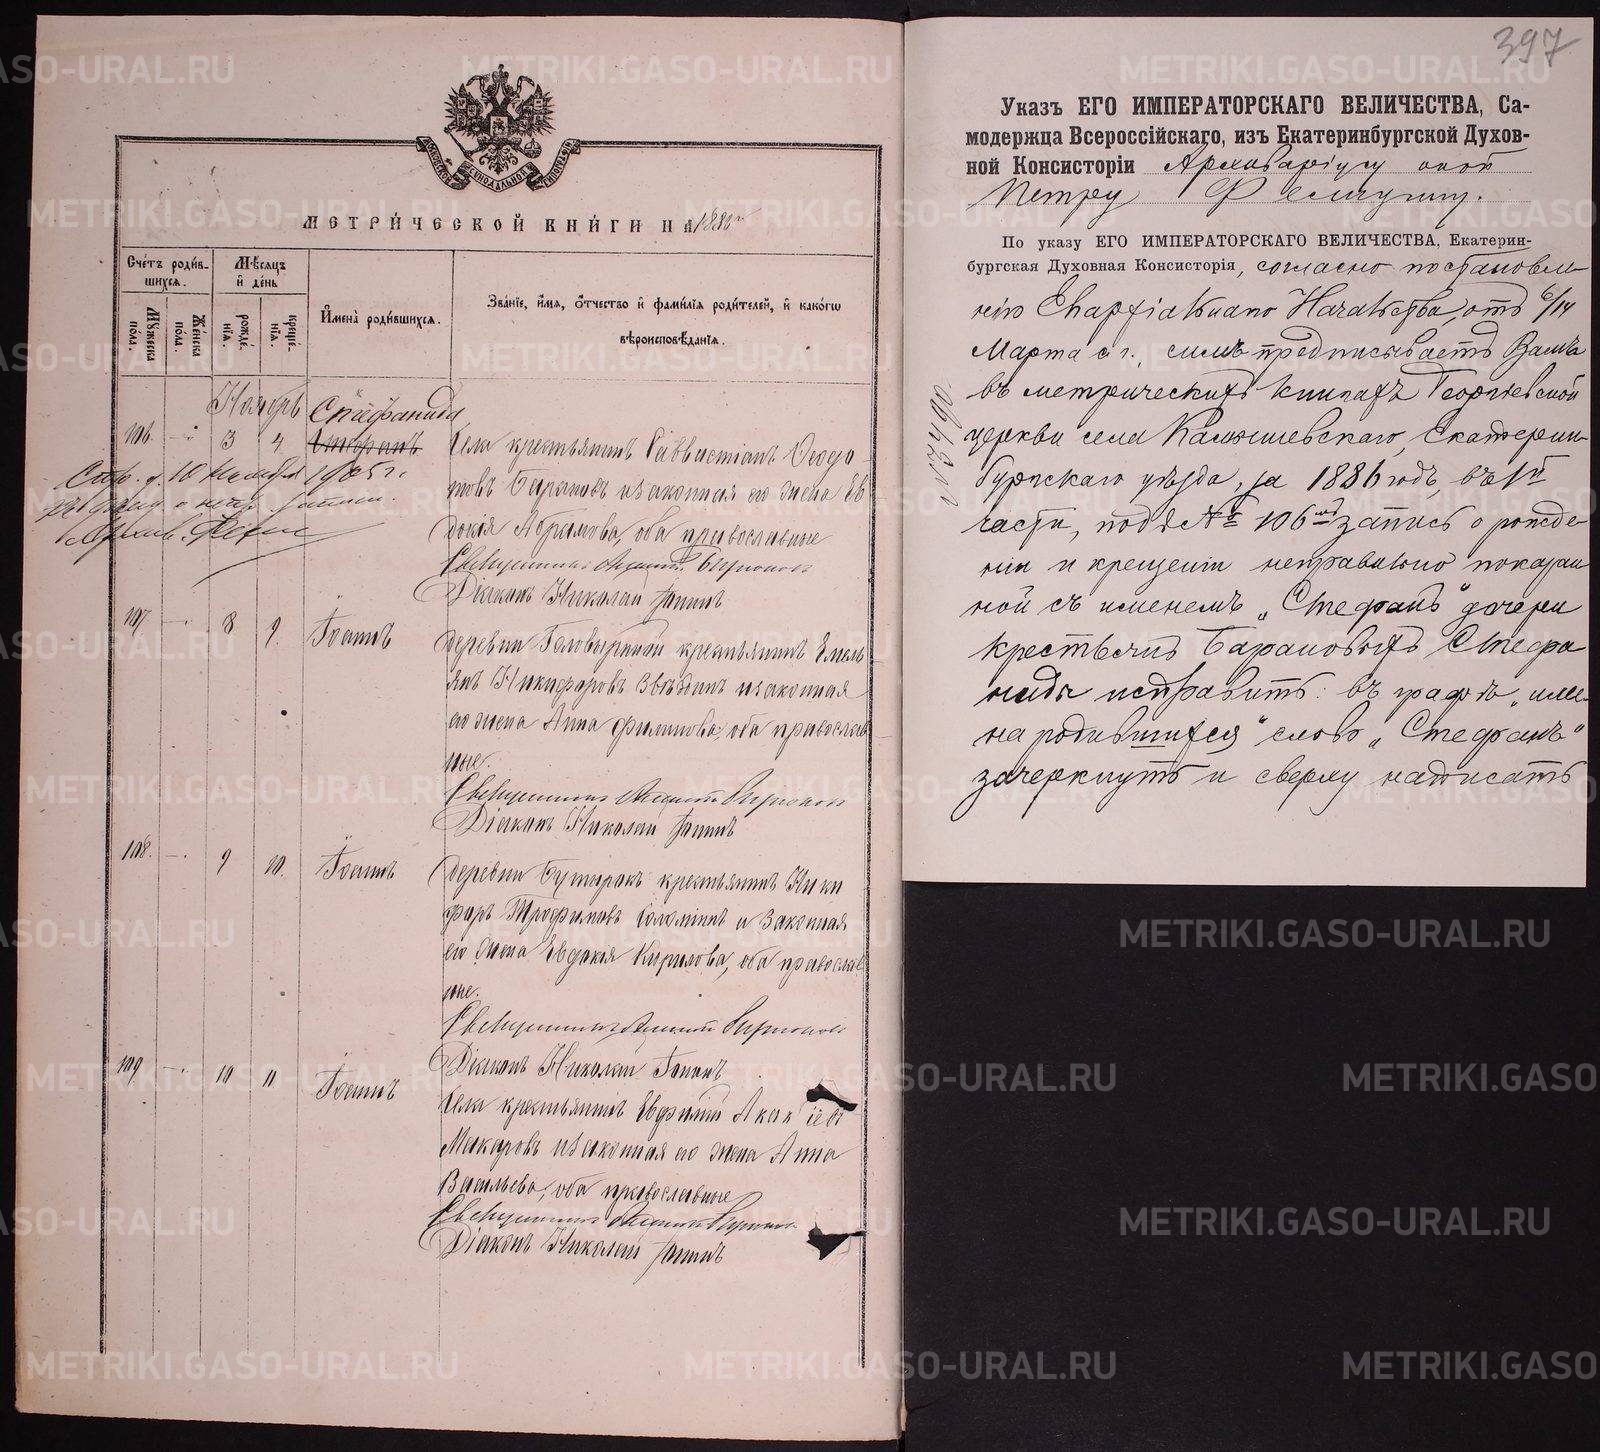 МЕТРИЧЕСКОЙ КНИГИ НА 1886 г.
Счетъ родившихся.
Мужеска пола.
Женска пола.
Месяцъ и день
рождения.
крещения.
Имена родившихся.
Званіе, имя, отчество и фамилія родителей, и какого
вероисповеданія.
Ноябрь
Стефанида
106. - 3 4 Стефанъ
Села крестьянинъ Савватіанъ Ѳеодо-
товъ Барановъ и законная его жена Ев
докія Абрамова, оба православные
10 Ноября 1905 г.
Священникъ
Діаконъ Николай Топинъ
107. - 8 9. Іоаннъ
Деревни Головыриной крестьянинъ Емель
янъ Никифоровъ Звѣздинъ и законная
его жена Анна Филипова, оба православ
ные.
Священникъ
Діаконъ Николай Топинъ
108. - 9 10. Іоаннъ
Деревни Бутырокъ крестьянинъ Ники
форъ Трофимовъ Соломинъ и законная
его жена Евдокія Кирилова, оба православ
ные.
Священникъ
Діаконъ Николай Топинъ
109 - 10 11 Іоаннъ
Села крестьянинъ Евфимій Акакіевъ
Макаровъ и законная его жена Анна
Васильева, оба православные
Священникъ
Діаконъ Николай Топинъ
397
Указъ ЕГО ИМПЕРАТОРСКАГО ВЕЛИЧЕСТВА, Са-
модержца Всероссійскаго, изъ Екатеринбургской Духов-
ной Консисторіи Архиваріусу оной
Петру
По указу ЕГО ИМПЕРАТОРСКАГО ВЕЛИЧЕСТВА, Екатерин-
бургская Духовная Консисторія, согласно постановле-
нію Епархіальнаго Начальства, отъ 6/14
Марта с. г., симъ предписываетъ Вамъ
въ метрическихъ книгахъ Георгіевской
церкви села Камышевскаго, Екатерин-
бургскаго уѣзда, за 1886 годъ, въ 1й
части, подъ № 106мъ запись о рожде-
ніи и крещеніи неправильно показан
ной съ именемъ „Стефанъ“ дочери
крестьянъ Барановыхъ Стефа
ниды исправить: въ графѣ „име-
на родившихся“ слово „Стефанъ“
зачеркнуть и сверху написать
METRIKI.GASO-URAL.RU